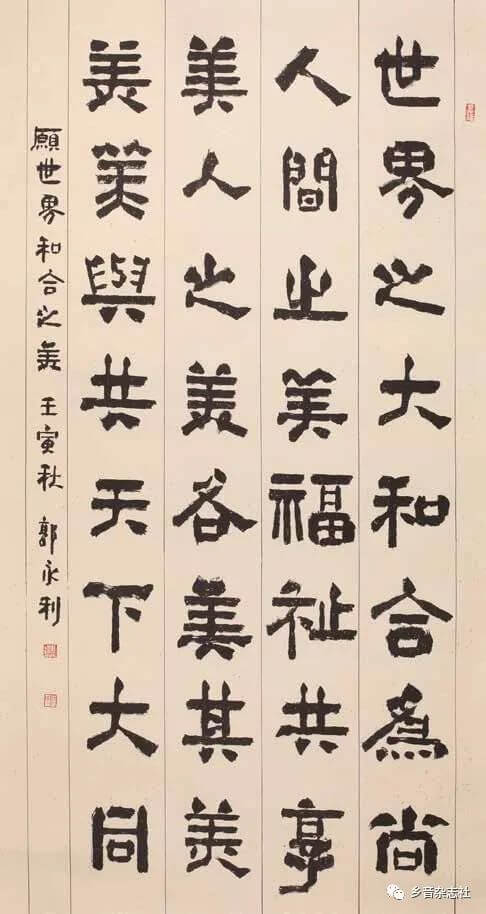 世界之大和合爲尚
人間之美福祉共享
美人之美各美其美
美美與共天下大同
願世界和合之美 壬寅秋 郭永利
乡音杂志社